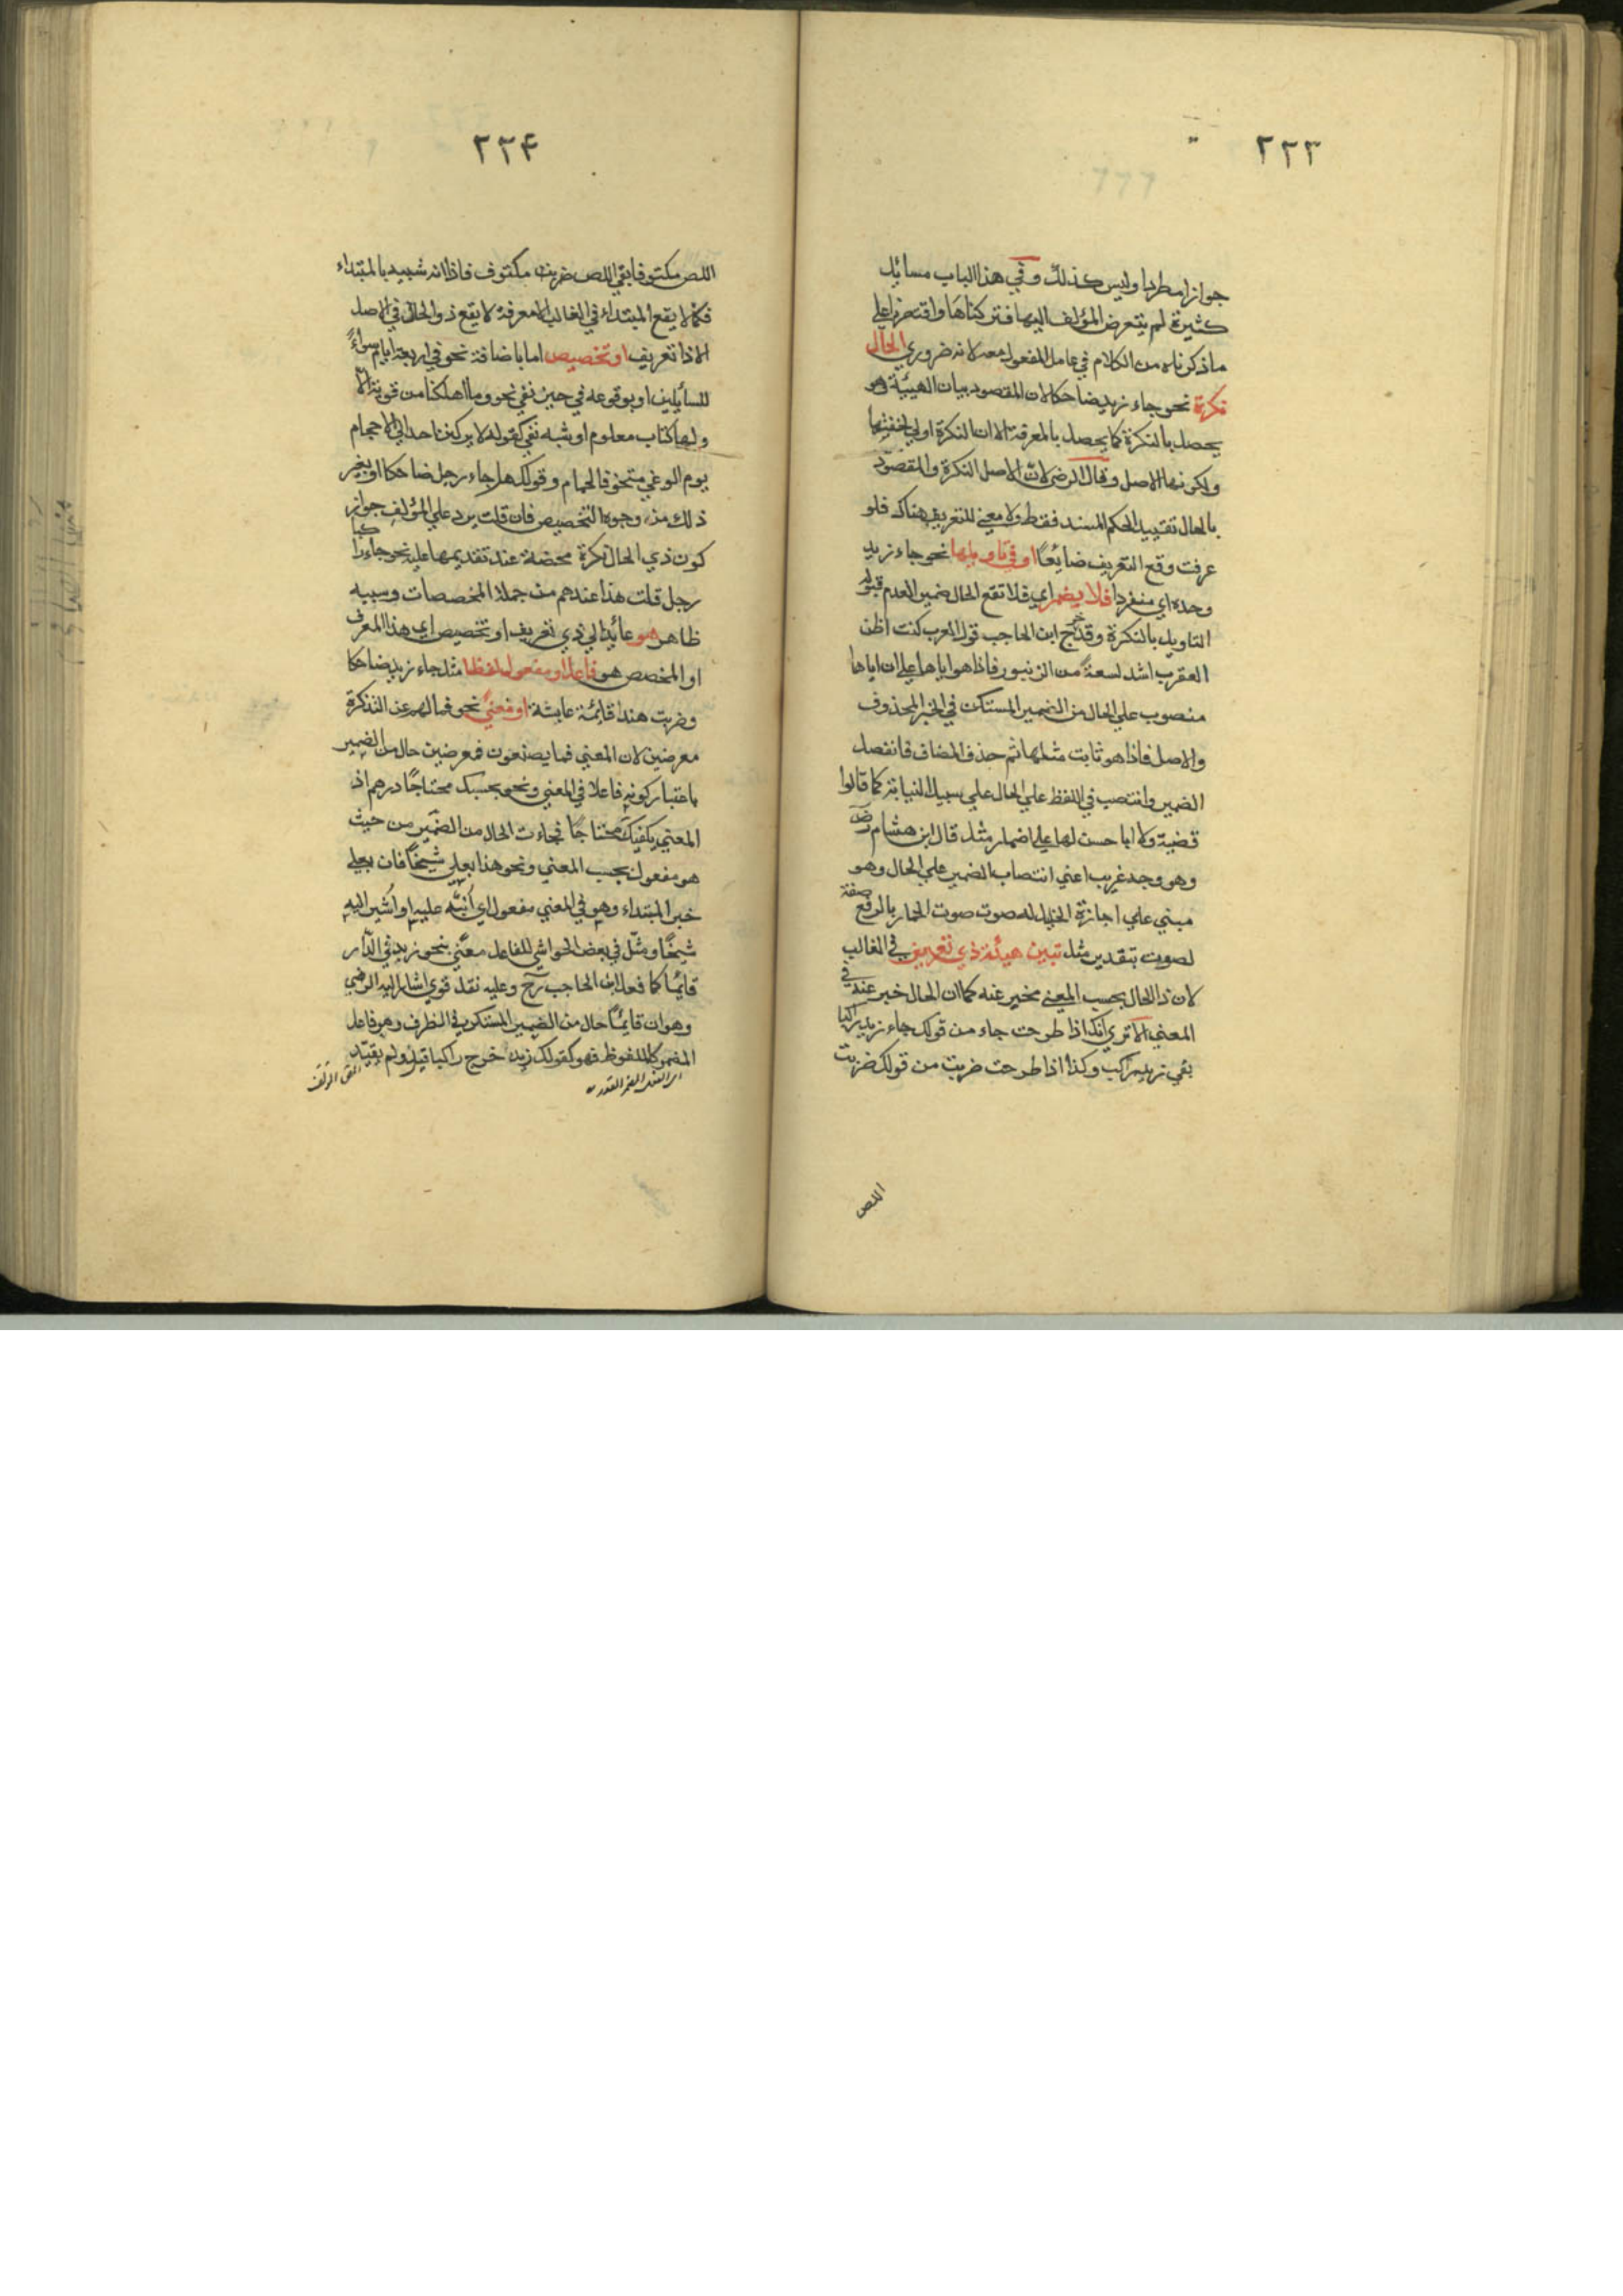 ٢٢٣
جوازا مطردا وليس كذلك وفي هذا الباب مسائل
كثيرة لم يتعرض المؤلف اليها فتركناها واقتصرنا علي
ما ذكرناه من الكلام في عامل المفعول معه لانه ضروري الحال
نكرة نحو جاء زيد ضاحكا لان المقصود بيان الهيئة وهو
يحصل بالنكرة كما يحصل بالمعرفة الا ان النكرة اولي لخفتها
ولكونها الاصل وقال الرضي لان الاصل النكرة والمقصود
بالحال تقييد الحكم المسند فقط ولا معني للتعريف هناك فلو
عرفت وقع التعريف ضائعًا او في تاويلها نحو جاء زيد
وحده اي منفردا فلا يضمر اي فلا تقع الحال ضمير لعدم قبوله
التاويل بالنكرة وقد خرّج ابن الحاجب قول العرب كنت اظن
العقرب اشد لسعةً من الزنبور فاذا هو اياها علي ان اياها
منصوب علي الحال من الضمير المستكن في الخبر المحذوف
والاصل فاذا هو ثابت مثلها ثم حذف المضاف فانفصل
الضمير وانتصب في اللفظ علي الحال علي سبيل النيابة كما قالوا
قضية ولا ابا حسن لها علي اضمار مثل قال ابن هشام
وهو وجه غريب اعني انتصاب الضمير علي الحال وهو
مبني علي اجازة الخليل له صوت صوت الحمار بالرفع صفة
لصوت بتقدير مثل تبين هيئة ذي تعريف في الغالب
لان ذا الحال بحسب المعني مخبر عنه كما ان الحال خبر عنه في
المعني الا تري انك اذا طرحت جاء من قولك جاء زيد راكبا
بقي زيد راكب وكذا اذا طرحت ضربت من قولك ضربت
اللص
٢٢۴
اللص مكتوفا بقي اللص مكتوف فاذا انه شبيه بالمبتداء
فكما لا يقع المبتداء في الغالب الا معرفة لا يقع ذو الحال في الاصل
الا ذا تعريف او تخصيص اما باضافة نحو في اربعة ايام سواءً
للسائلين او بوقوعه في حيز نفي نحو وما اهلكنا من قرية الا
ولها كتاب معلوم او شبه نفي كقوله لا يركنن احد الي الاحجام
يوم الوغي متخوفا لحمام وقولك هل جاء رجل ضاحكا او بغير
ذلك من وجوه التخصيص فان قلت يرد علي المؤلف جواز
كون ذي الحال نكرة محضة عند تقديمها عليه نحو جاء راكبا
رجل قلت هذا عندهم من جملة المخصصات وسببه
ظاهر هو عائد الي ذي تعريف او تخصيص اي هذا المعرف
او المخصص هو فاعل او مفعول لفظا مثل جاء زيد ضاحكا
وضربت هندا قائمة عابثة او معنيً نحو فما لهم عن التذكرة
معرضين لان المعني فما يصنعون فمعرضين حال من الضمير
باعتبار كونه فاعلا في المعني ونحو بحسبك محتاجًا درهم اذ
المعني يكفيك محتاجًا فجاءت الحال من الضمير من حيث
هو مفعول بحسب المعني ونحو هذا بعلي شيخًا فان بعلي
خبر المبتداء وهو في المعني مفعول اي أنبّه عليه او اشير اليه
شيخًا ومثّل في بعض الحواشي للفاعل معني بنحو زيد في الدّار
قائمًا كما فعل ابن الحاجب رح وعليه نقد قوي اشار اليه الرضي
وهو ان قائمًا حال من الضمير المستكن في الظرف وهو فاعل
المضمر كالملفوظ فهو كقولك زيد خرج راكبا قيل ولم يقيّد